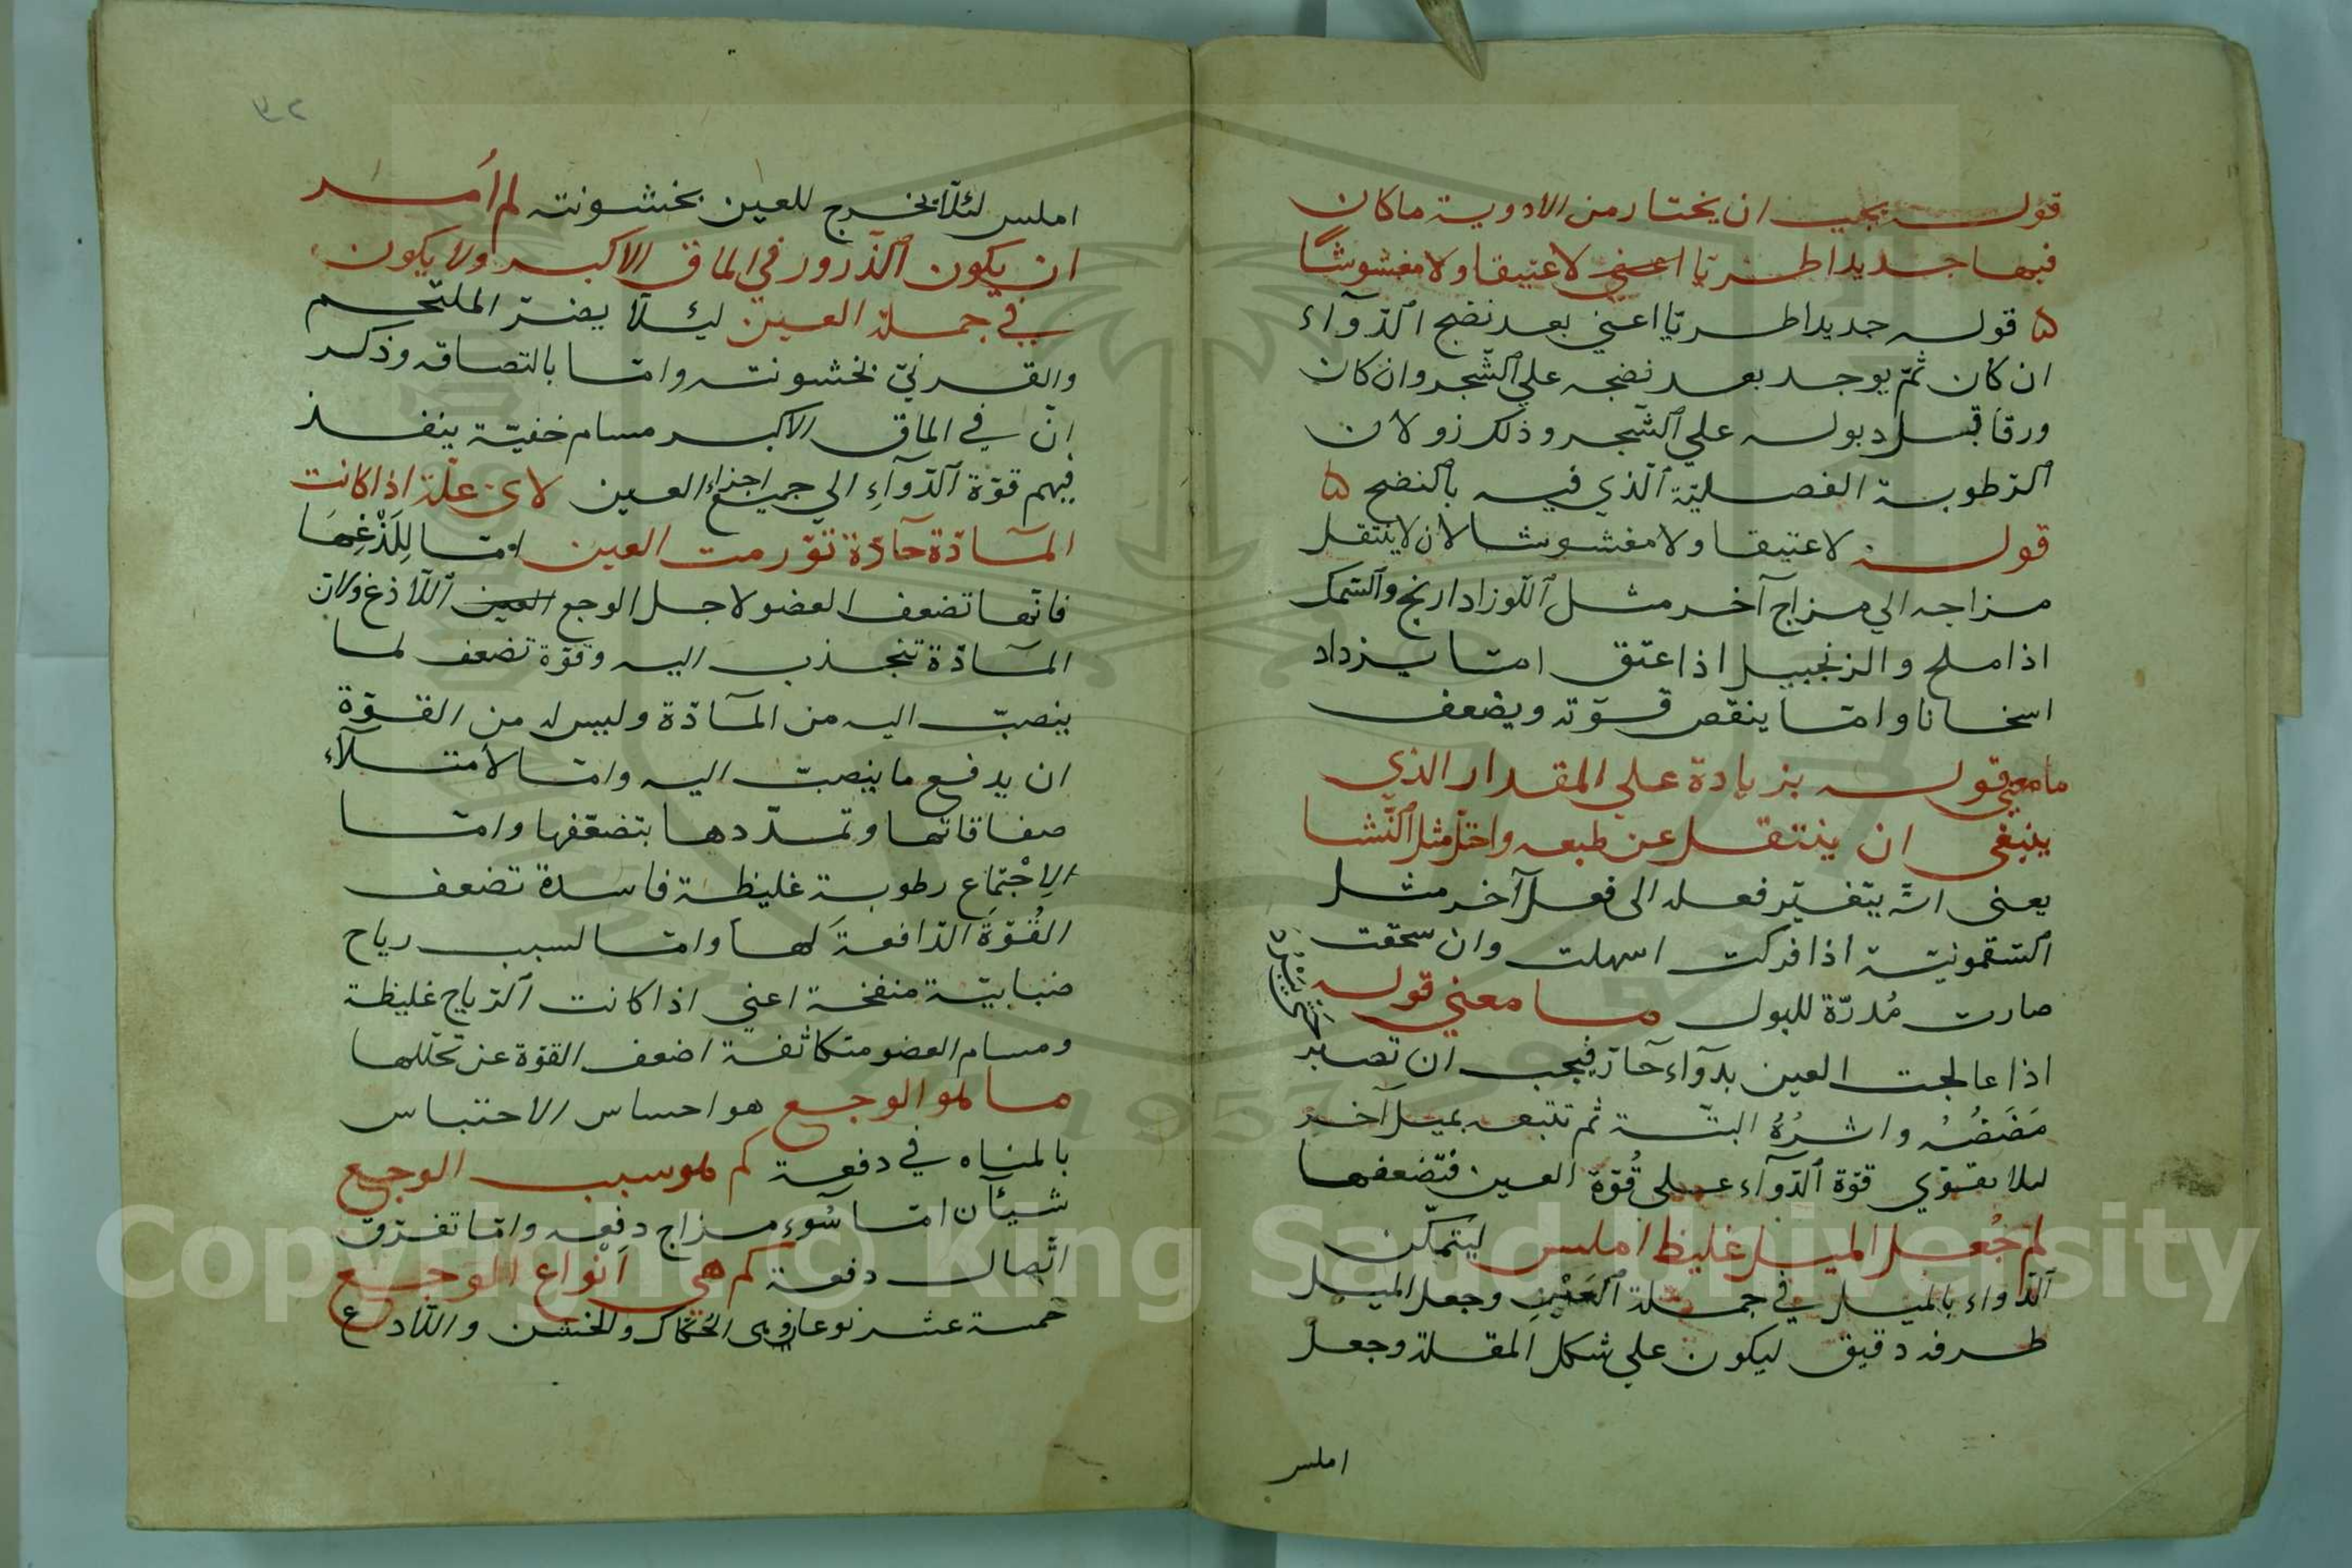 قوله يجب ان يختار من الادوية ما كان
فيها جديدا طريّا اعني لا عتيقا ولا مغشوشًا
ه قوله جديدا طريّا اعني بعد نضج الدّوآء
ان كان ثمّ يوجد بعد نضجه علي الشّجر وان كان
ورقا قبل دبوله علي الشّجر وذلك زولان
الرّطوبة الفصليّة الّذي فيه بالنضج ه
قوله لا عتيقا ولا مغشوشا لان لا ينتقل
مزاجه الي مزاج آخر مثل اللّوز اذا رنج والسّمك
اذا ملح والزنجبيل اذا عتق امّا يزداد
اسخانا وامّا ينقص قوّته ويضعف
ما معني قوله بزيادة علي المقدار الذي
ينبغي ان ينتقل عن طبعه واختلّ مثل النّشا
يعني انّه يتغيّر فعله الى فعل آخر مثل
السّقمونيّة اذا فركت اسهلت وان سحقت
صارت مُدرّة للبول ما معني قوله
اذا عالجت العين بدوآء حآرّ فيجب ان تصبر
مَضَضُه واثرُهُ البتّة ثم تتبعه بميل آخر
ليلا يقوّي قوّة الدّوآء علي قُوّة العين فتضعفها
لم جُعل الميل غليظ املس ليتمكّن
الدّواء بالميل في جملة العَيْنِ وجعل الميل
طرفه دقيق ليكون علي شكل المقلة وجعل
املس
املس لئلّا يخرج للعين بخشونته لم اُمر
ان يكون الذّرور في الماق الاكبر ولا يكون
في جملة العين ليئلّا يضرّ الملتحم
والقرنيّ بخشونته وامّا بالتصاقه وذكر
انّ في الماق الاكبر مسام خفيّة ينفذ
فيهم قوّة الدّوآءِ الي جميع اجزاء العين لاي علّة اذا كانت
المآدّة حآدّة تورّمت العين امّا لِلَذْغِهَا
فانّها تضعف العضو لاجل الوجع العين اللّاذغ ولانّ
المآدّة تنجذب اليه وقوّة تضعف لما
ينصبّ اليه من المآدّة وليس له من القوّة
ان يدفع ما ينصبّ اليه وامّا لامتلآء
صفاقاتها وتمدّدها بتضعّفها وامّا
الاِجْتِماع رطوبة غليظة فاسدة تضعف
القُوّةَ الدّافعةَ لها وامّا لسبب رياح
ضبابيّة منفخة اعني اذا كانت الرّياح غليظة
ومسام العضو متكاثفة اضعف القوّة عن تحلّلها
ما هو الوجع هو احساس الاحتباس
بالمناه في دفعة كم هو سبب الوجع
شيئآن امّا سُوء مزاج دفعه وامّا تفرّق
اتّصال دفعة كم هي اَنْواع الوجع
خمسة عشر نوعا وهي الحكّاك والخشن واللّادع